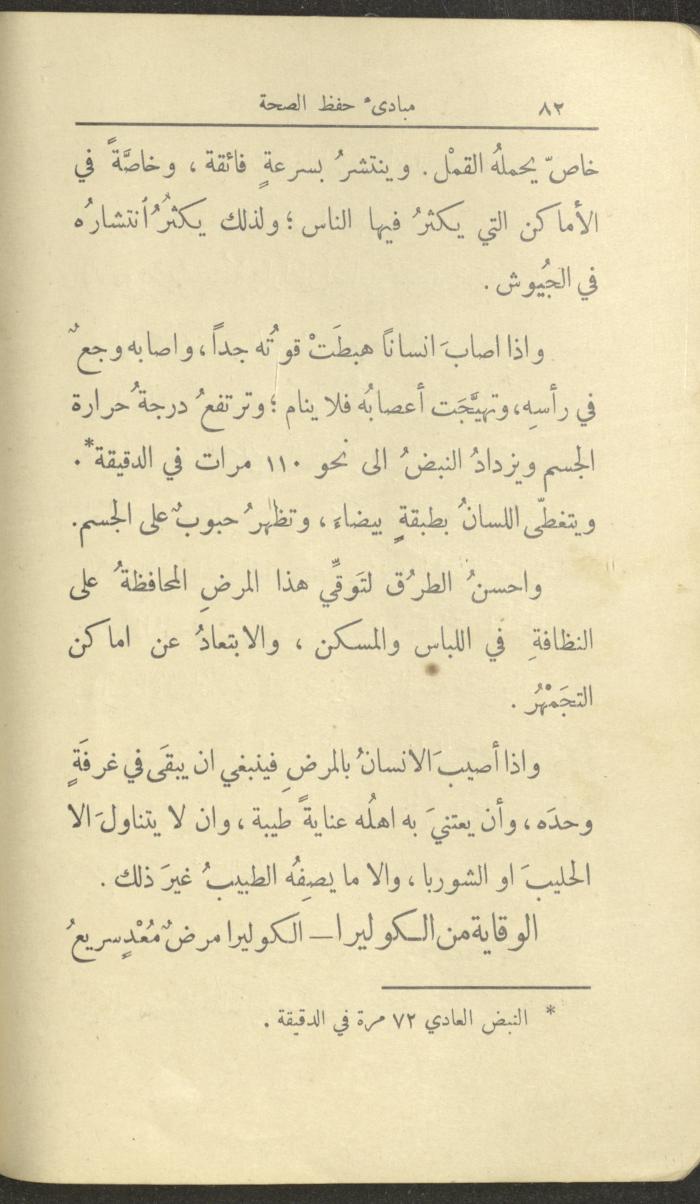 ٨٢ مبادىء حفظ الصحة
خاصّ يحملهُ القمْل. وينتشرُ بسرعةٍ فائقة ، وخاصَّةً في
الأماكن التي يكثرُ فيها الناس ؛ ولذلك يكثرُ ٱنتشارُه
في الجُيوش .
واذا اصابَ انساناً هبطَتْ قوتُه جداً ، واصابه وجعٌ
في رأسِه، وتهيَّجَت أعصابُه فلا ينام ؛ وترتفعُ درجةُ حرارة
الجسم ويزدادُ النبضُ الى نحو ١١٠ مرات في الدقيقة* .
ويتغطّى اللسانُ بطبقةٍ بيضاء ، وتظهرُ حبوبٌ على الجسم.
واحسنُ الطرُق لتَوقّي هذا المرضِ المحافظةُ على
النظافةِ في اللباس والمسكن ، والابتعادُ عن اماكن
التجَمْهُر .
واذا أصيبَ الانسانُ بالمرضِ فينبغي ان يبقَى في غرفَةٍ
وحدَه ، وأن يعتنيَ به اهلُه عنايةً طيبة ، وان لا يتناولَ الا
الحليبَ او الشوربا ، والا ما يصِفُه الطبيبُ غيرَ ذلك .
الوقاية من الكوليرا — الكوليرا مرضٌ مُعْدٍ سريعُ
* النبض العادي ٧٢ مرة في الدقيقة .